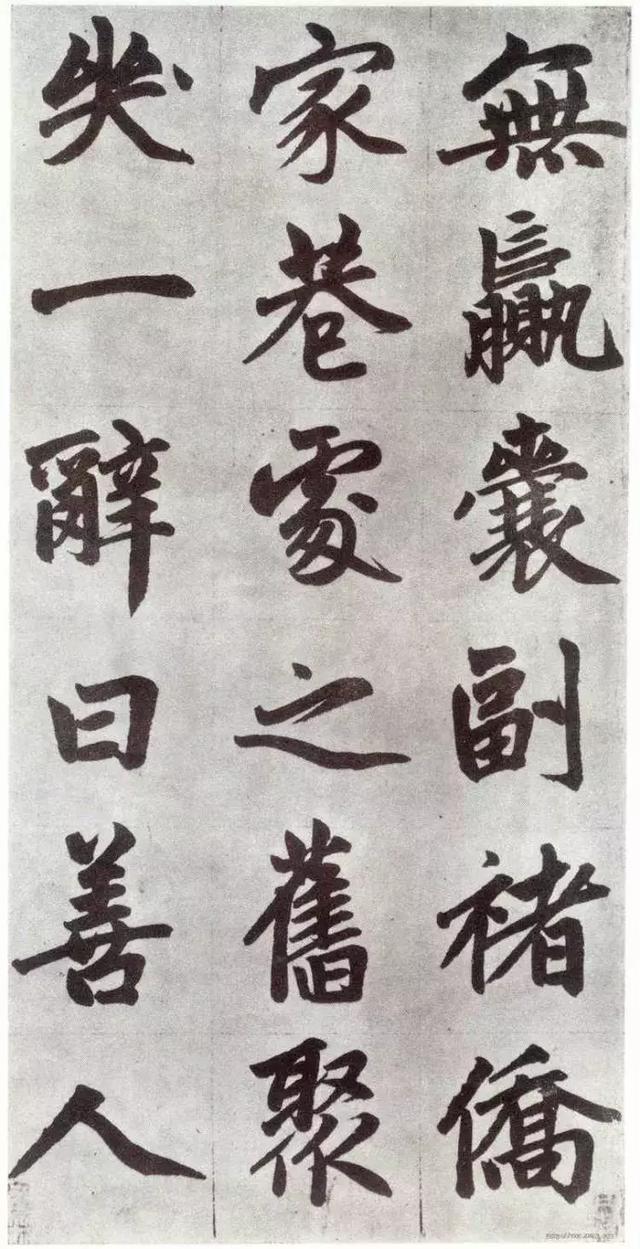 無羸囊副褚僑
家巷處之舊聚
哭一辭曰善人